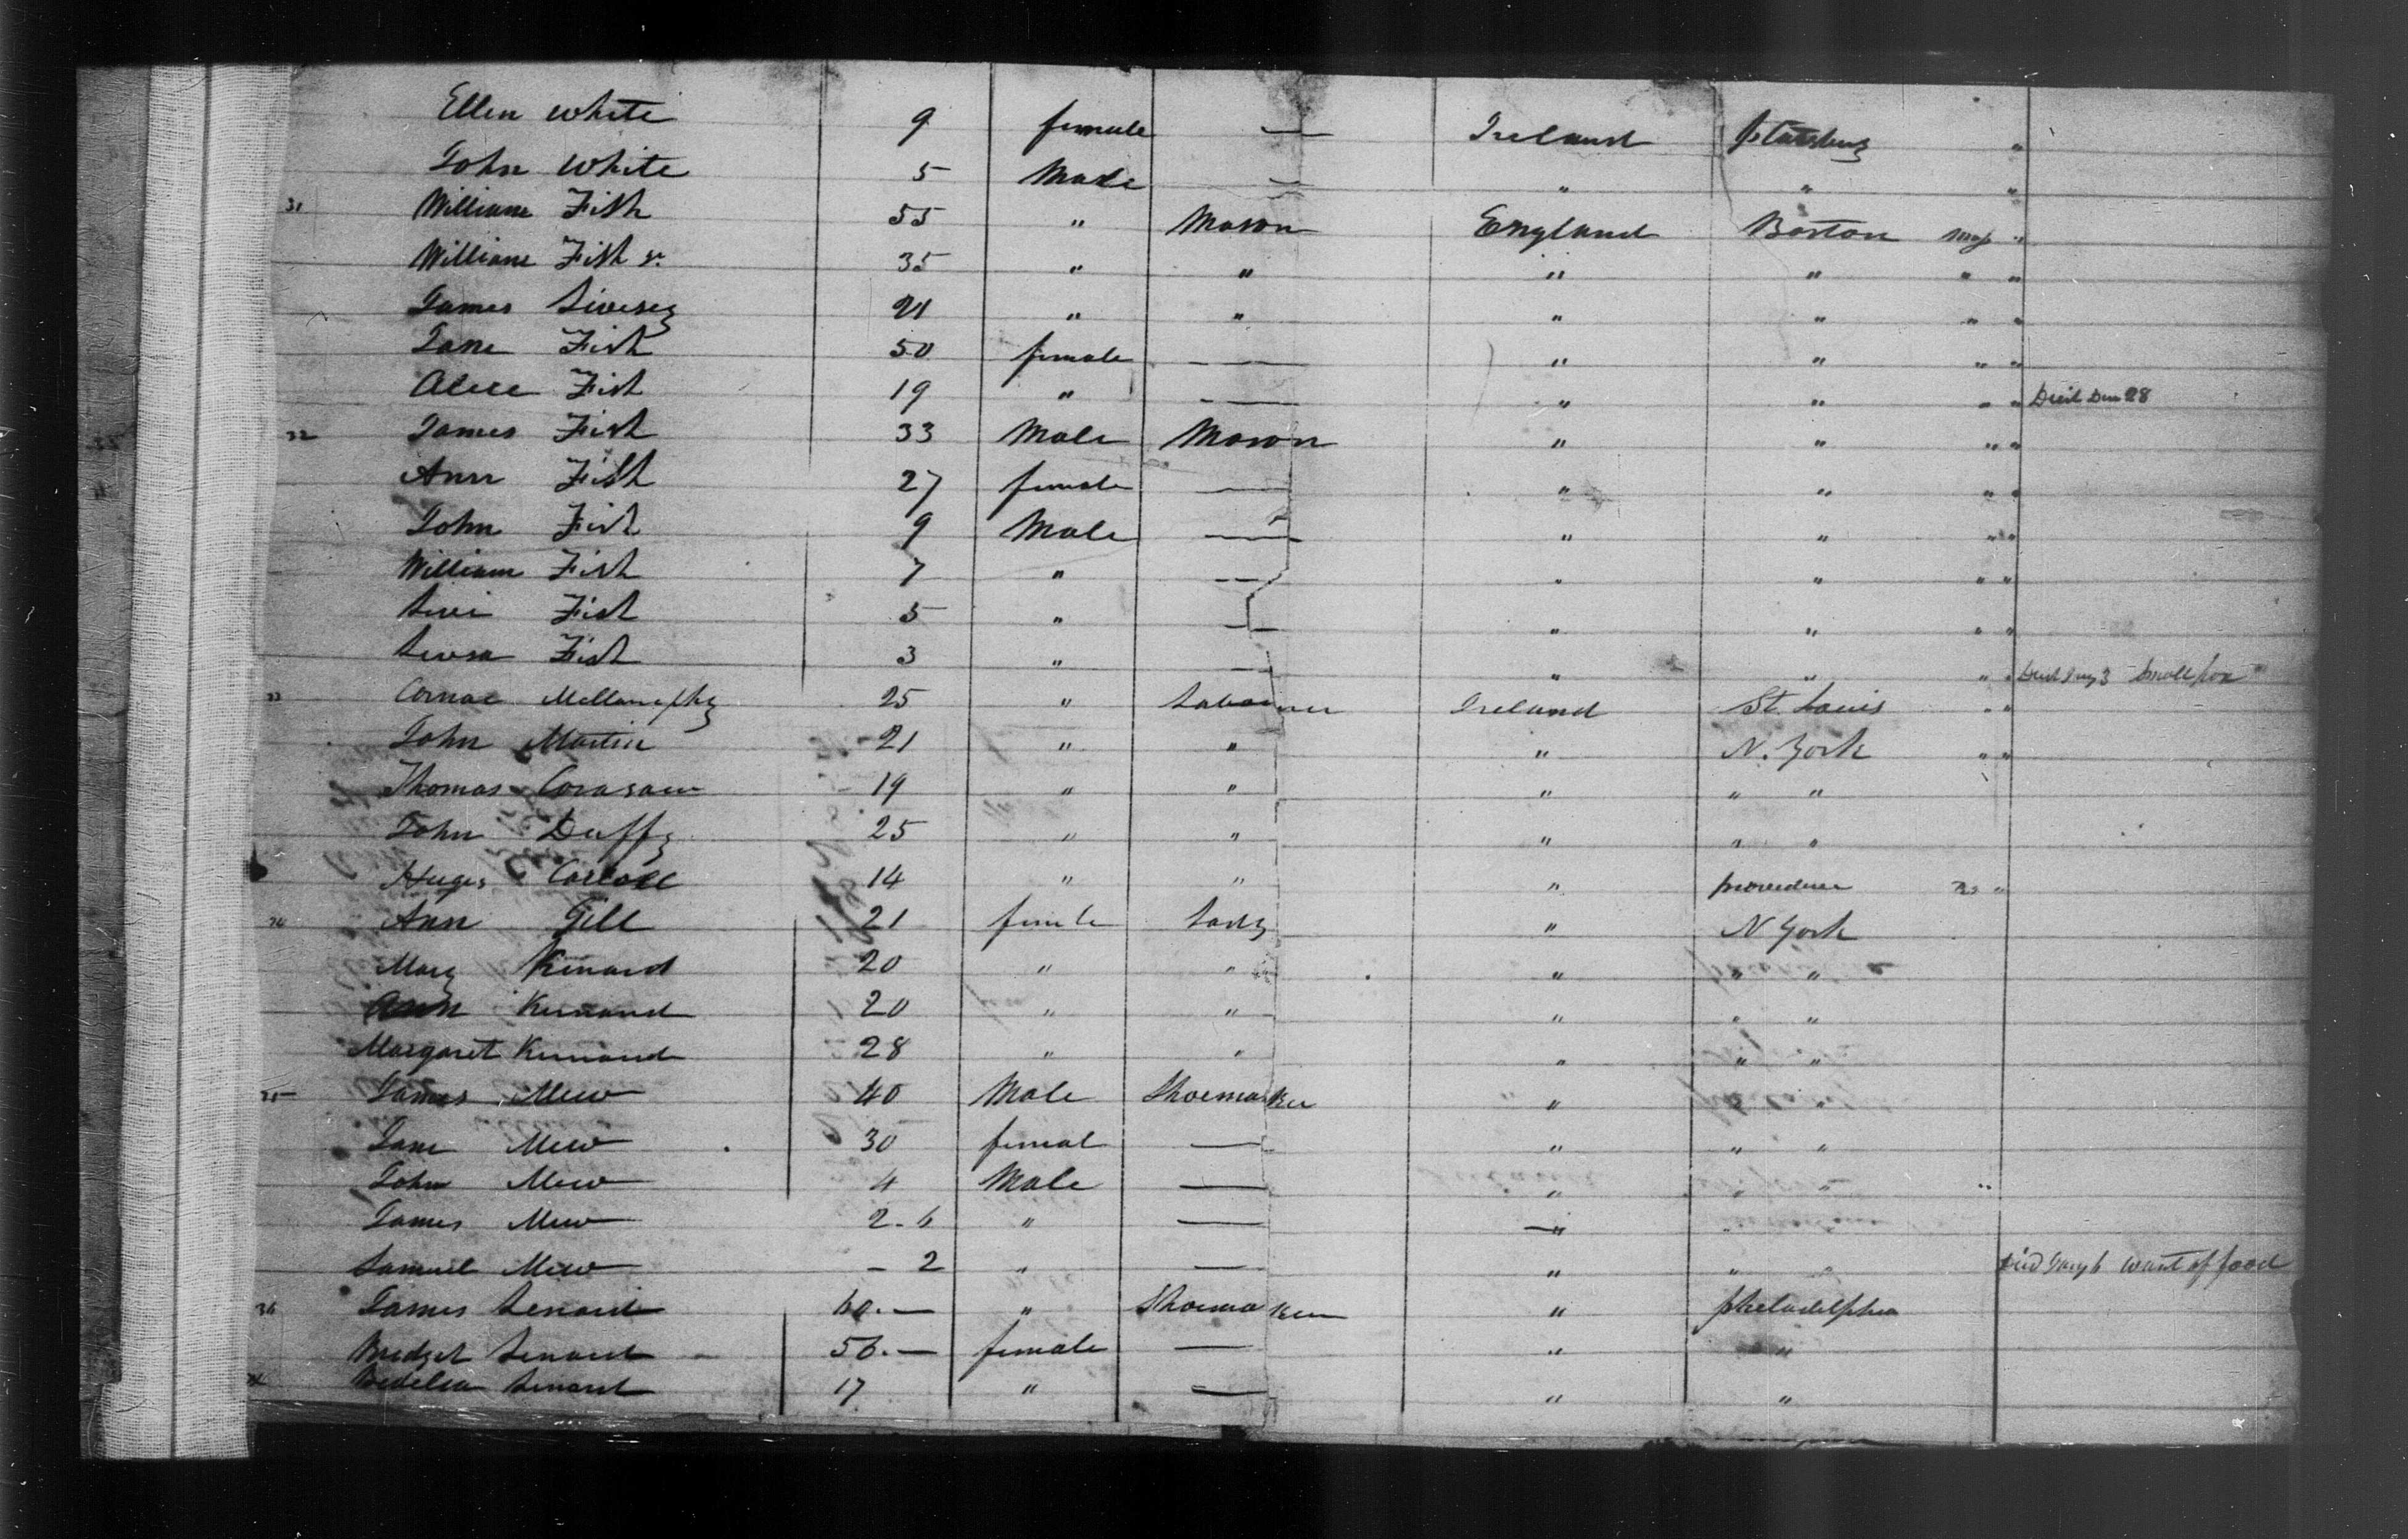 Ellen White 9 female — Ireland "
John White 5 Male — " " "
31 William Fish 55 " Mason England Boston Mass "
William Fish Jr. 35 " " " " " "
James Livesey 21 " " " " " "
Jane Fish 50 female — " " " "
Alice Fish 19 " — " " " " Died Dec 28
32 James Fish 33 Male Mason " " " "
Ann Fish 27 female — " " " "
John Fish 9 Male — " " " "
William Fish 7 " — " " " "
Levi Fish 5 " — " " " "
Fish 3 " — " " " " Died Jany 3 Small pox
33 Cormac 25 " Labourer Ireland St. Louis " "
John Martin 21 " " " N. York " "
Thomas 19 " " " " "
John Duffy 25 " " " " "
Carroll 14 " " " providence "
Ann Gill 21 female Lady " N York
Mary Kinard 20 " " " " "
Ann Kinand 20 " " " " "
Margaret Kinand 28 " " " " "
35 James Mew 40 Male Shoemaker " " "
Jane Mew 30 femal — " " "
John Mew 4 Male — " " " "
James Mew 2-6 " — " "
Samuel Mew - 2 " — " " " Died Jany 6 want of food
36 James Lenard 60.— " Shoemaker " pheladelphia
Bridget Lenard 56.— female — " "
Bedelia Lenard 17 " — " "